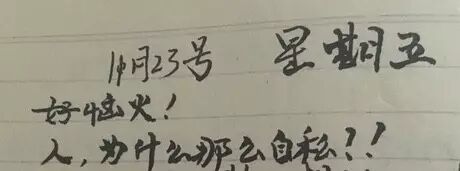 11月23号 星期五
好恼火！
人，为什么那么自私？！